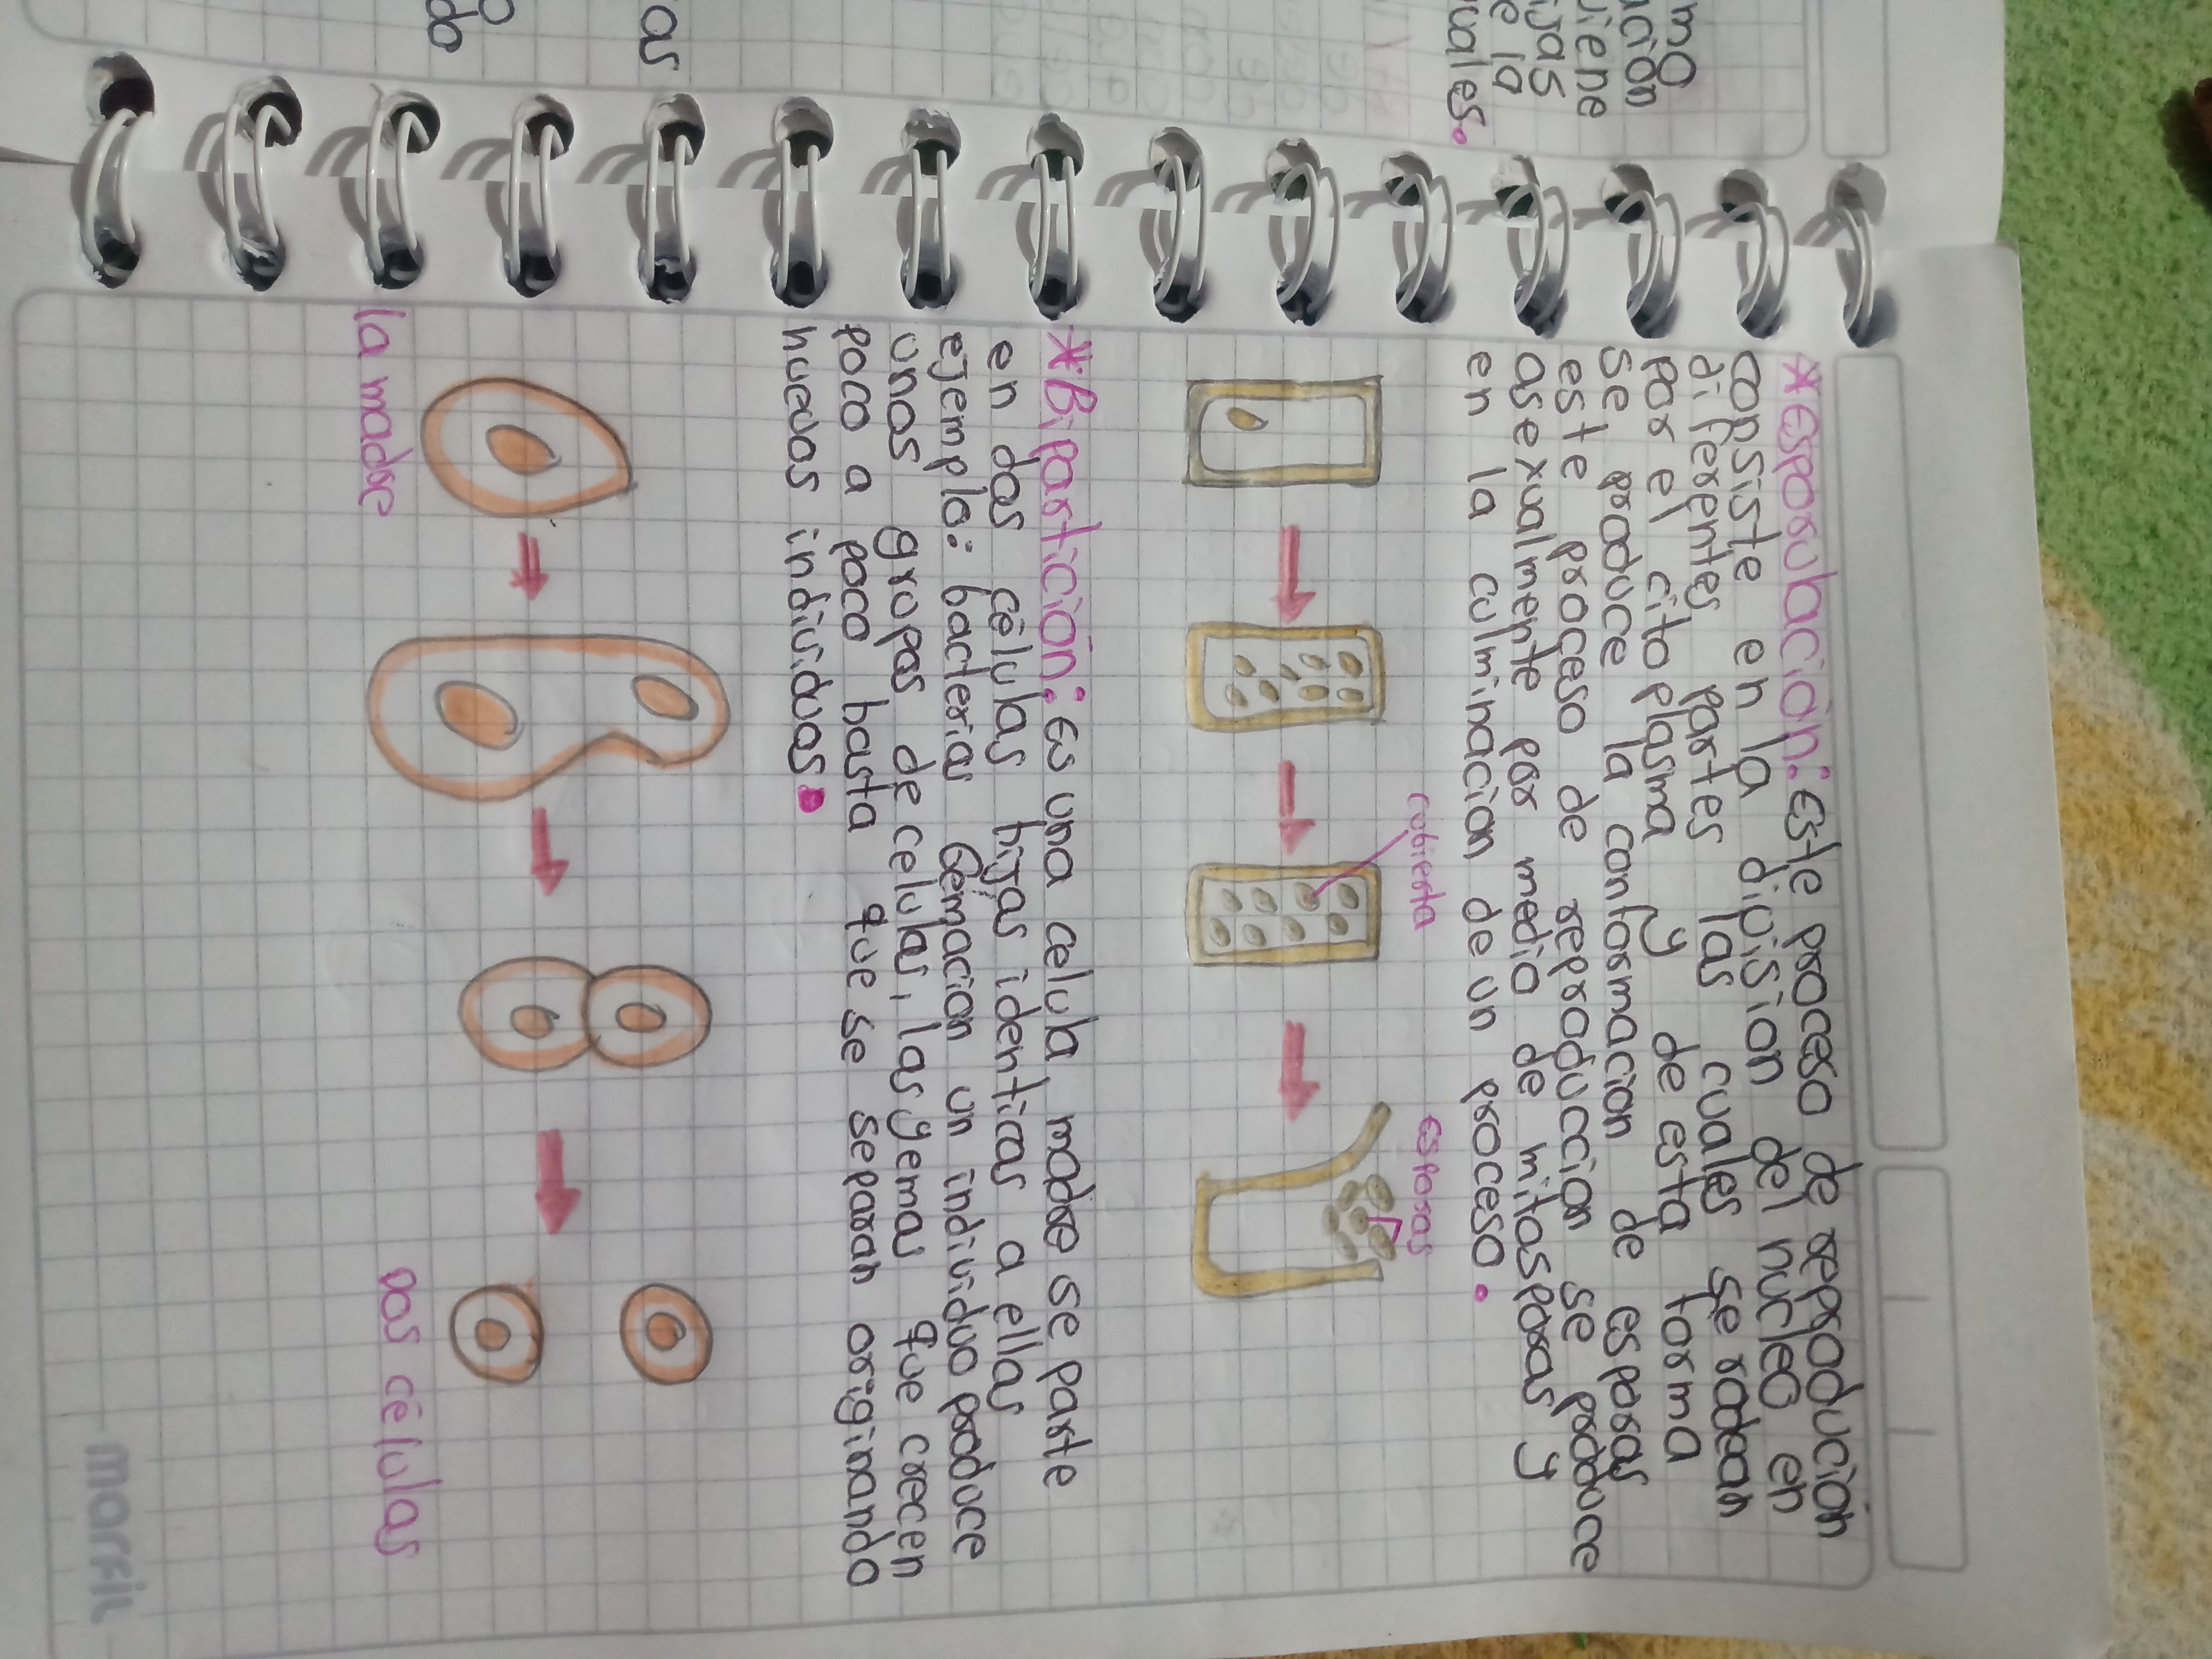 mo
ación
viene
ijas
e la
uales.
as
do
*Esporulación: Este proceso de reproducion
consiste en la division del nucleo en
diferentes partes las cuales se rodean
por el citoplasma y de esta forma
se produce la conformacion de esporas
este proceso de reproduccion se produce
asexualmente por medio de mitosporas y
en la culminacion de un proceso.
cubierta
Esporas
*Bipartición: Es una celula madre se parte
en dos células hijas identicas a ellas
ejemplo: bacterias Gemacion un individuo produce
unos grupos de celulas, las yemas que crecen
poco a poco hasta que se separan originando
nuevos individuos.
la madre
Dos células
marfil